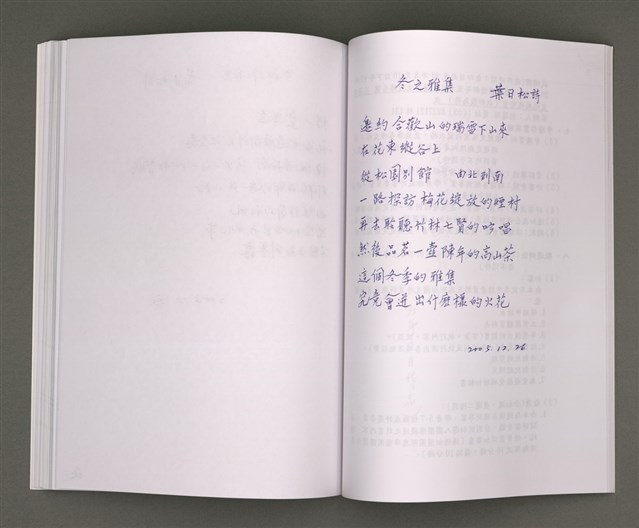 冬之雅集　葉日松詩
邀約合歡山的瑞雪下山來
在花東縱谷上
從松園別館　由北到南
一路探訪梅花綻放的煙村
再去聆聽竹林七賢的吟唱
然後品茗一壺陳年的高山茶
這個冬季的雅集
究竟會迸出什麼樣的火花
2005.12.26